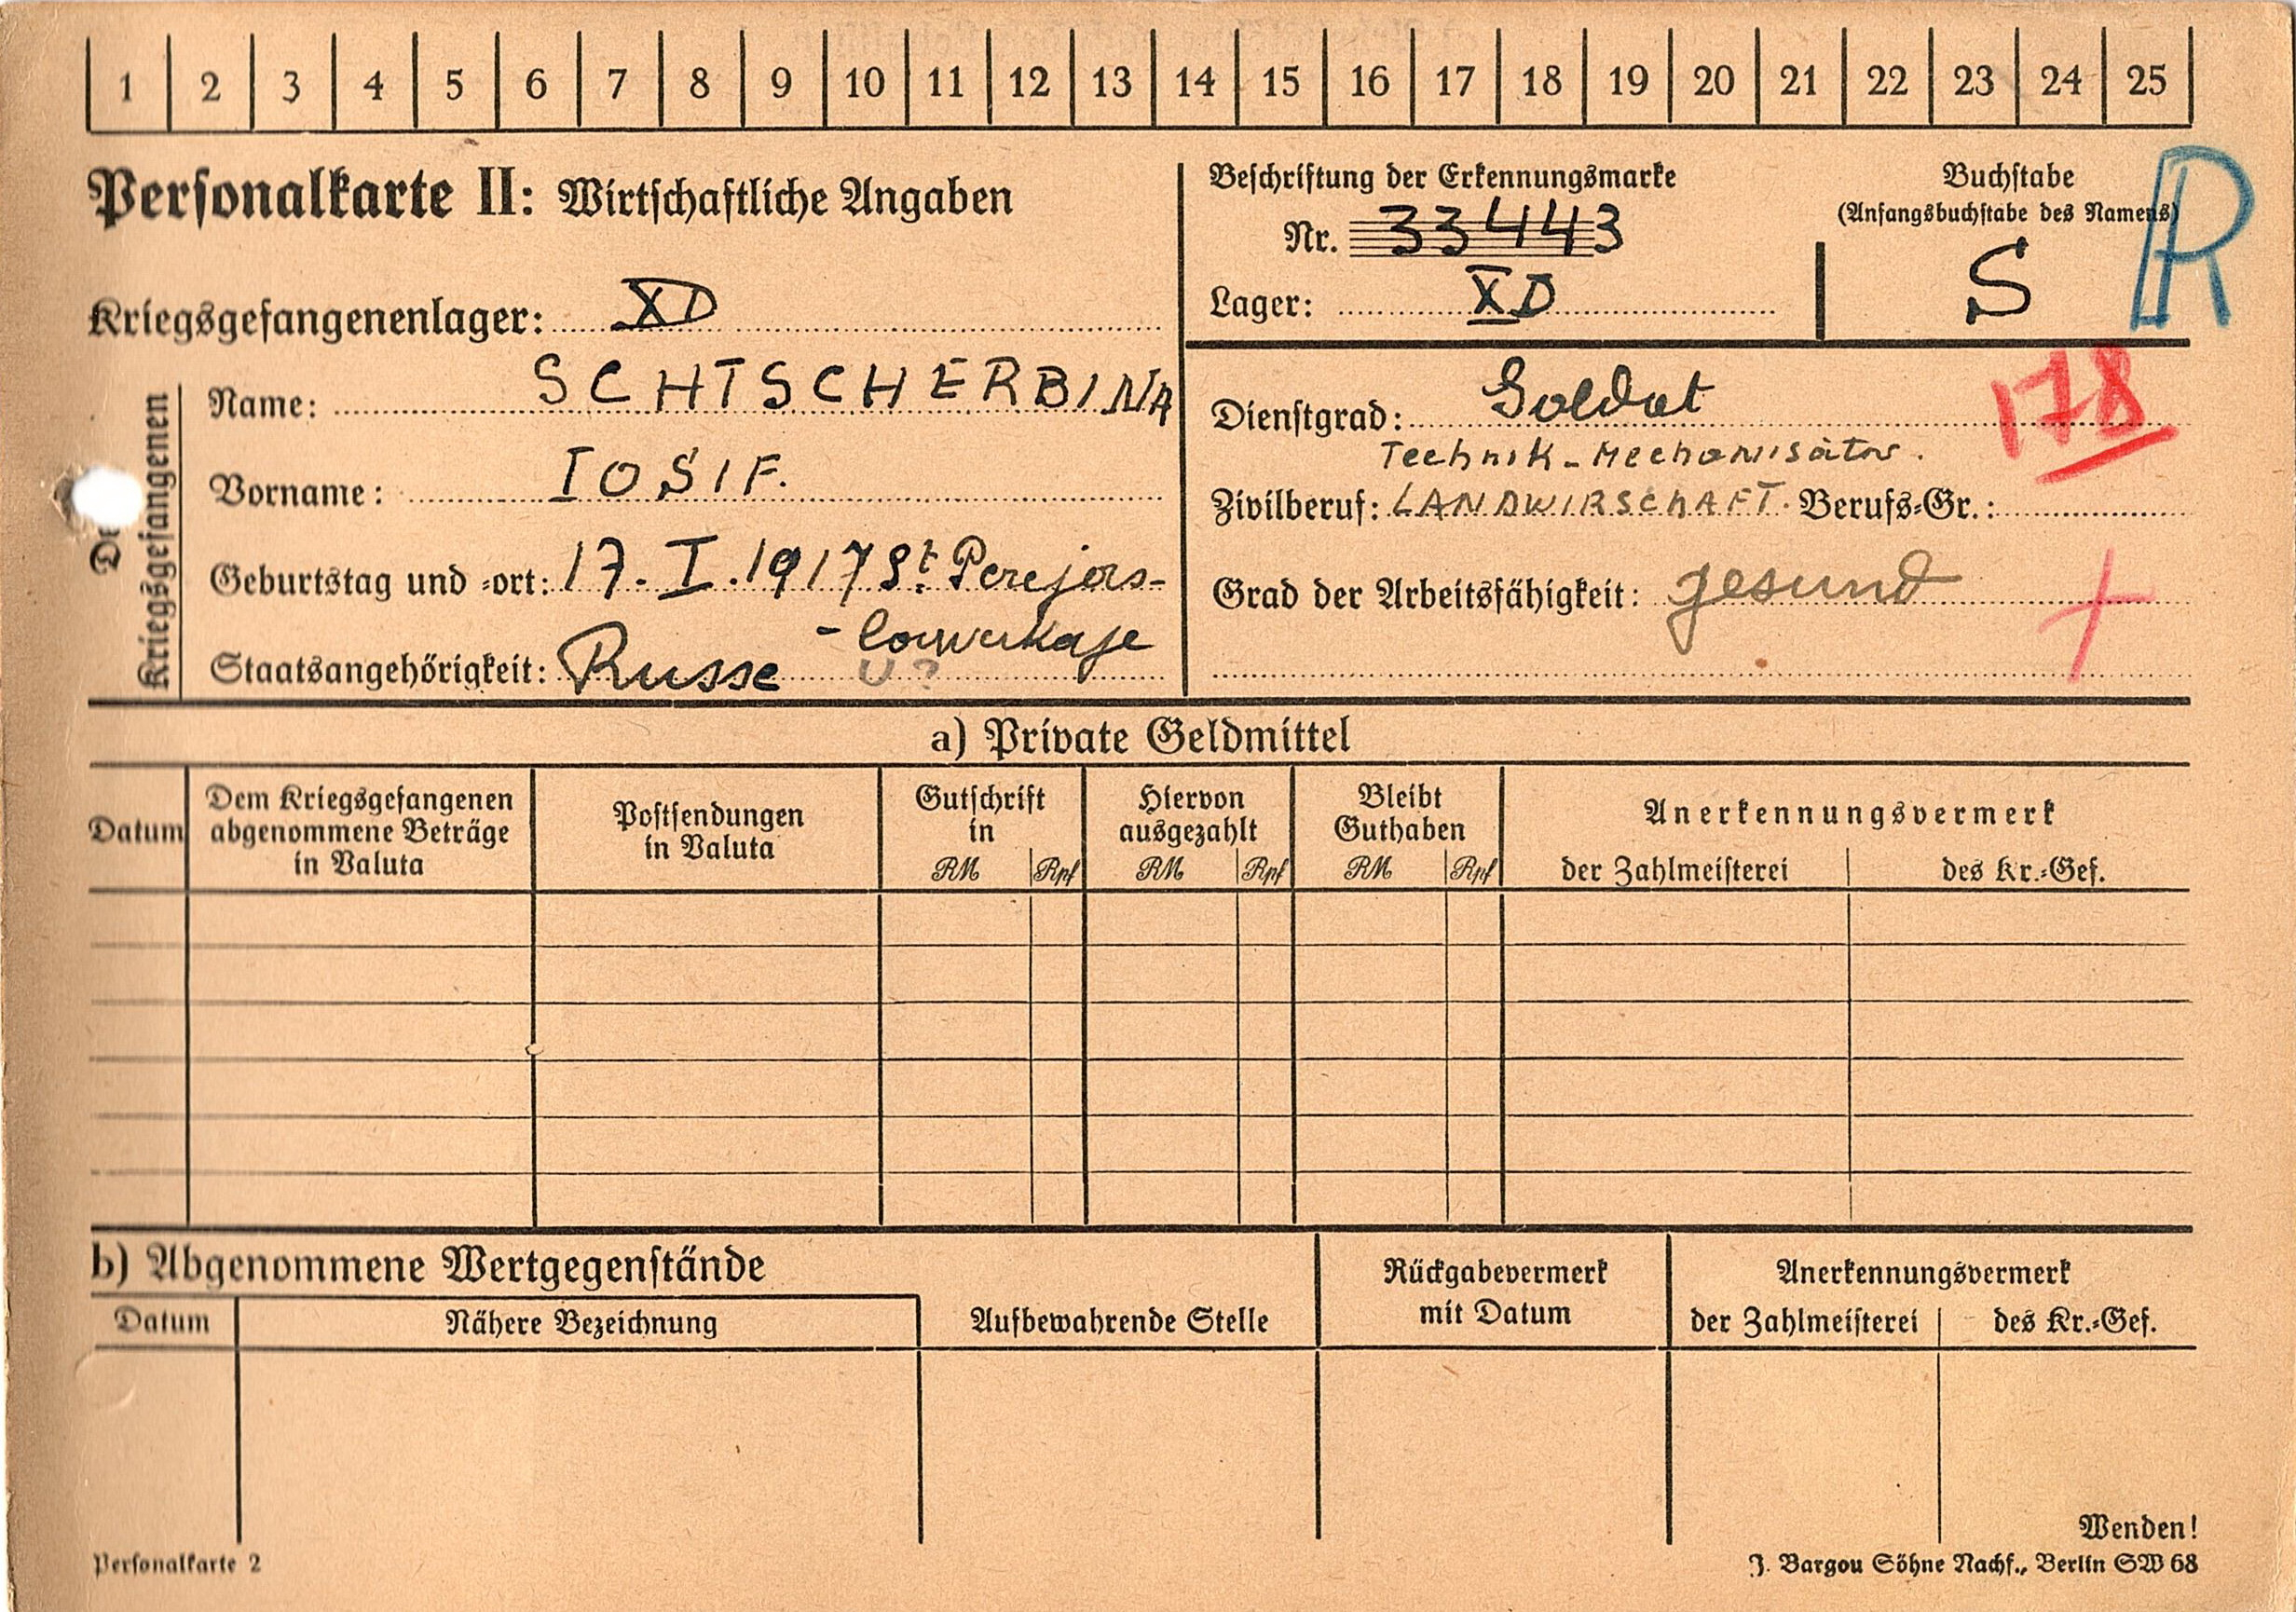 1 2 3 4 5 6 7 8 9 10 11 12 13 14 15 16 17 18 19 20 21 22 23 24 25
Personalkarte II: Wirtschaftliche Angaben
Beschriftung der Erkennungsmarke
Nr. 33443
Lager: XD
Buchstabe
(Anfangsbuchstabe des Namens)
S
R
Kriegsgefangenenlager: XD
Des Kriegsgefangenen
Name: SCHTSCHERBINA
Vorname: IOSIF.
Geburtstag und -ort: 17. I. 1917 St. Perejors-
Staatsangehörigkeit: Russe U?
Dienstgrad: Soldat
178
Technik-Mechanisator.
Zivilberuf: LANDWIRSCHAFT. Berufs-Gr.:
Grad der Arbeitsfähigkeit: gesund
a) Private Geldmittel
Datum
Dem Kriegsgefangenen abgenommene Beträge in Valuta
Postsendungen in Valuta
Gutschrift in RM Rpf
Hiervon ausgezahlt RM Rpf
Bleibt Guthaben RM Rpf
Anerkennungsvermerk
der Zahlmeisterei des Kr.-Gef.
b) Abgenommene Wertgegenstände
Datum Nähere Bezeichnung
Aufbewahrende Stelle
Rückgabevermerk mit Datum
Anerkennungsvermerk
der Zahlmeisterei des Kr.-Gef.
Wenden!
Personalkarte 2
J. Bargou Söhne Nachf., Berlin SW 68